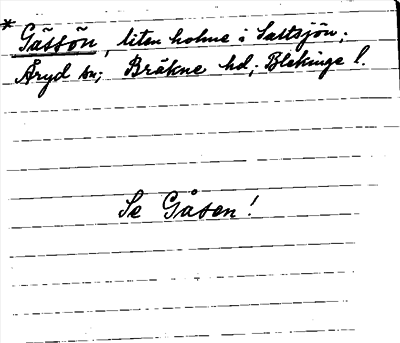 * Gåssön, liten holme i Saltsjön;
Åryd sn; Bräkne hd; Blekinge l.
Se Gåsen!